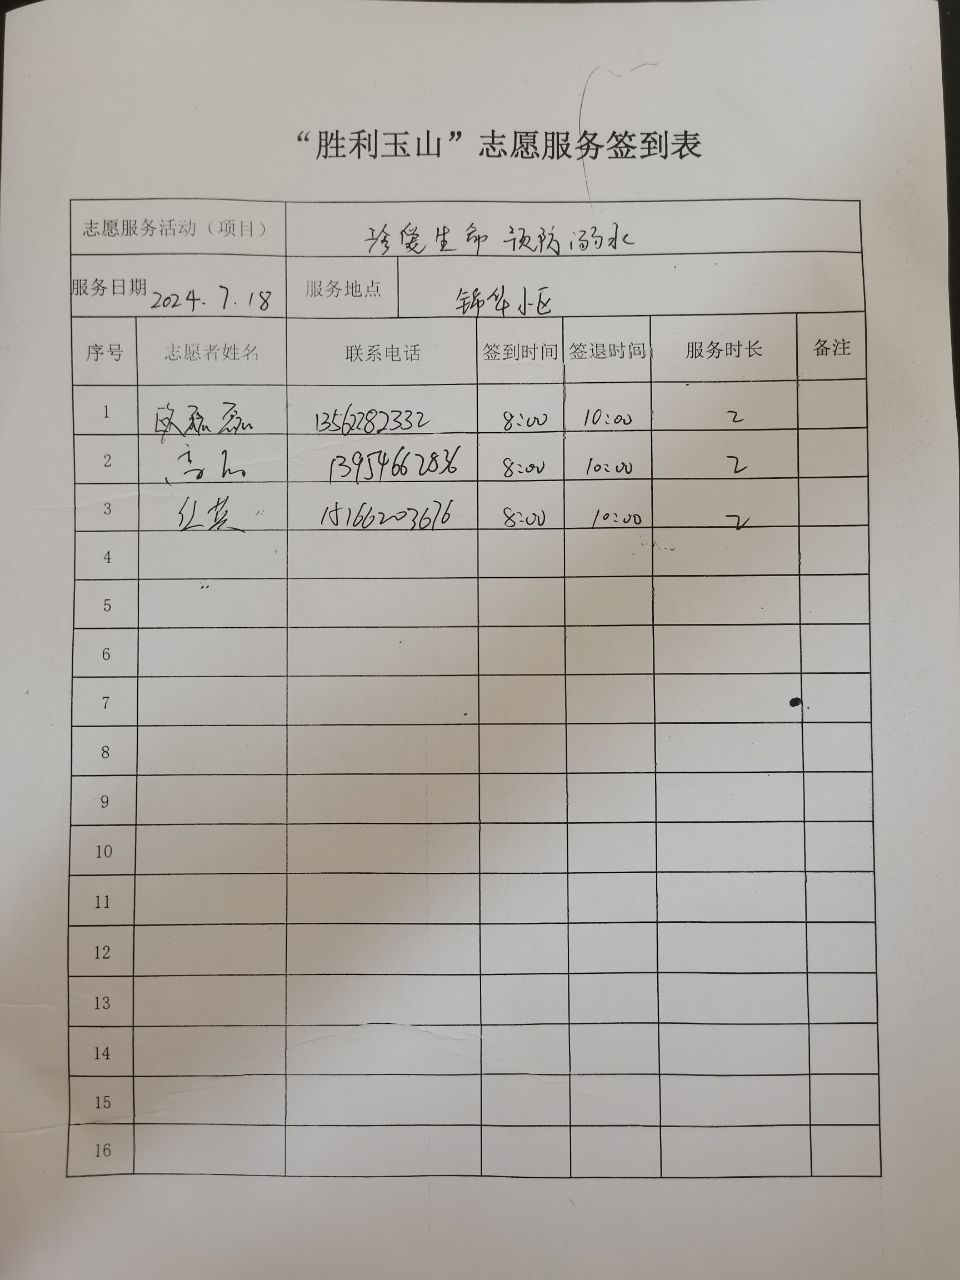 “胜利玉山”志愿服务签到表
志愿服务活动（项目） 珍爱生命 预防溺水
服务日期 2024.7.18 服务地点 锦华小区
序号 志愿者姓名 联系电话 签到时间 签退时间 服务时长 备注
1 13562282332 8:00 10:00 2
2 13954662836 8:00 10:00 2
3 15166203676 8:00 10:00 2
4
5
6
7
8
9
10
11
12
13
14
15
16